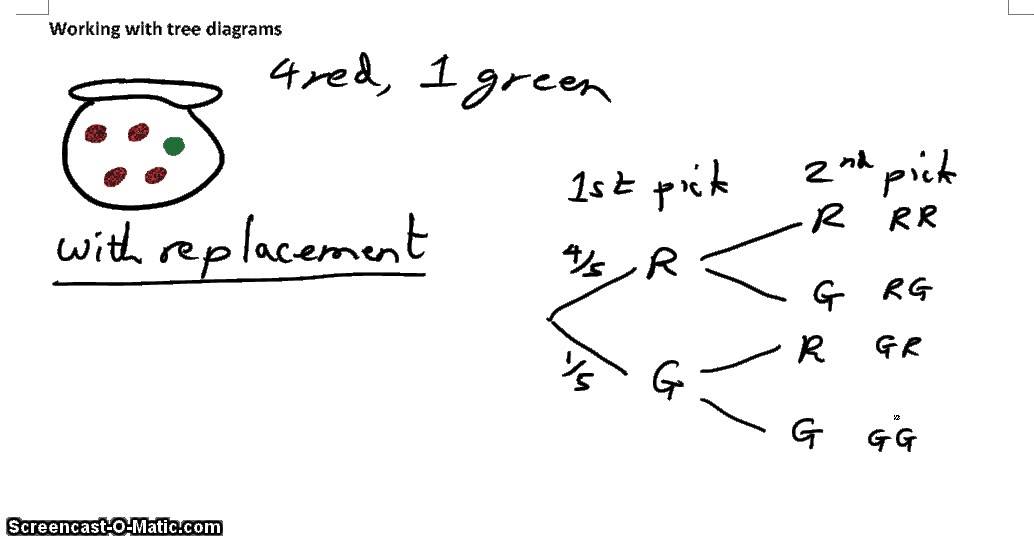 Working with tree diagrams
4 red, 1 green
1st pick 2nd pick
with replacement
R RR
4/5 R
G RG
R GR
1/5 G
G GG
Screencast-O-Matic.com